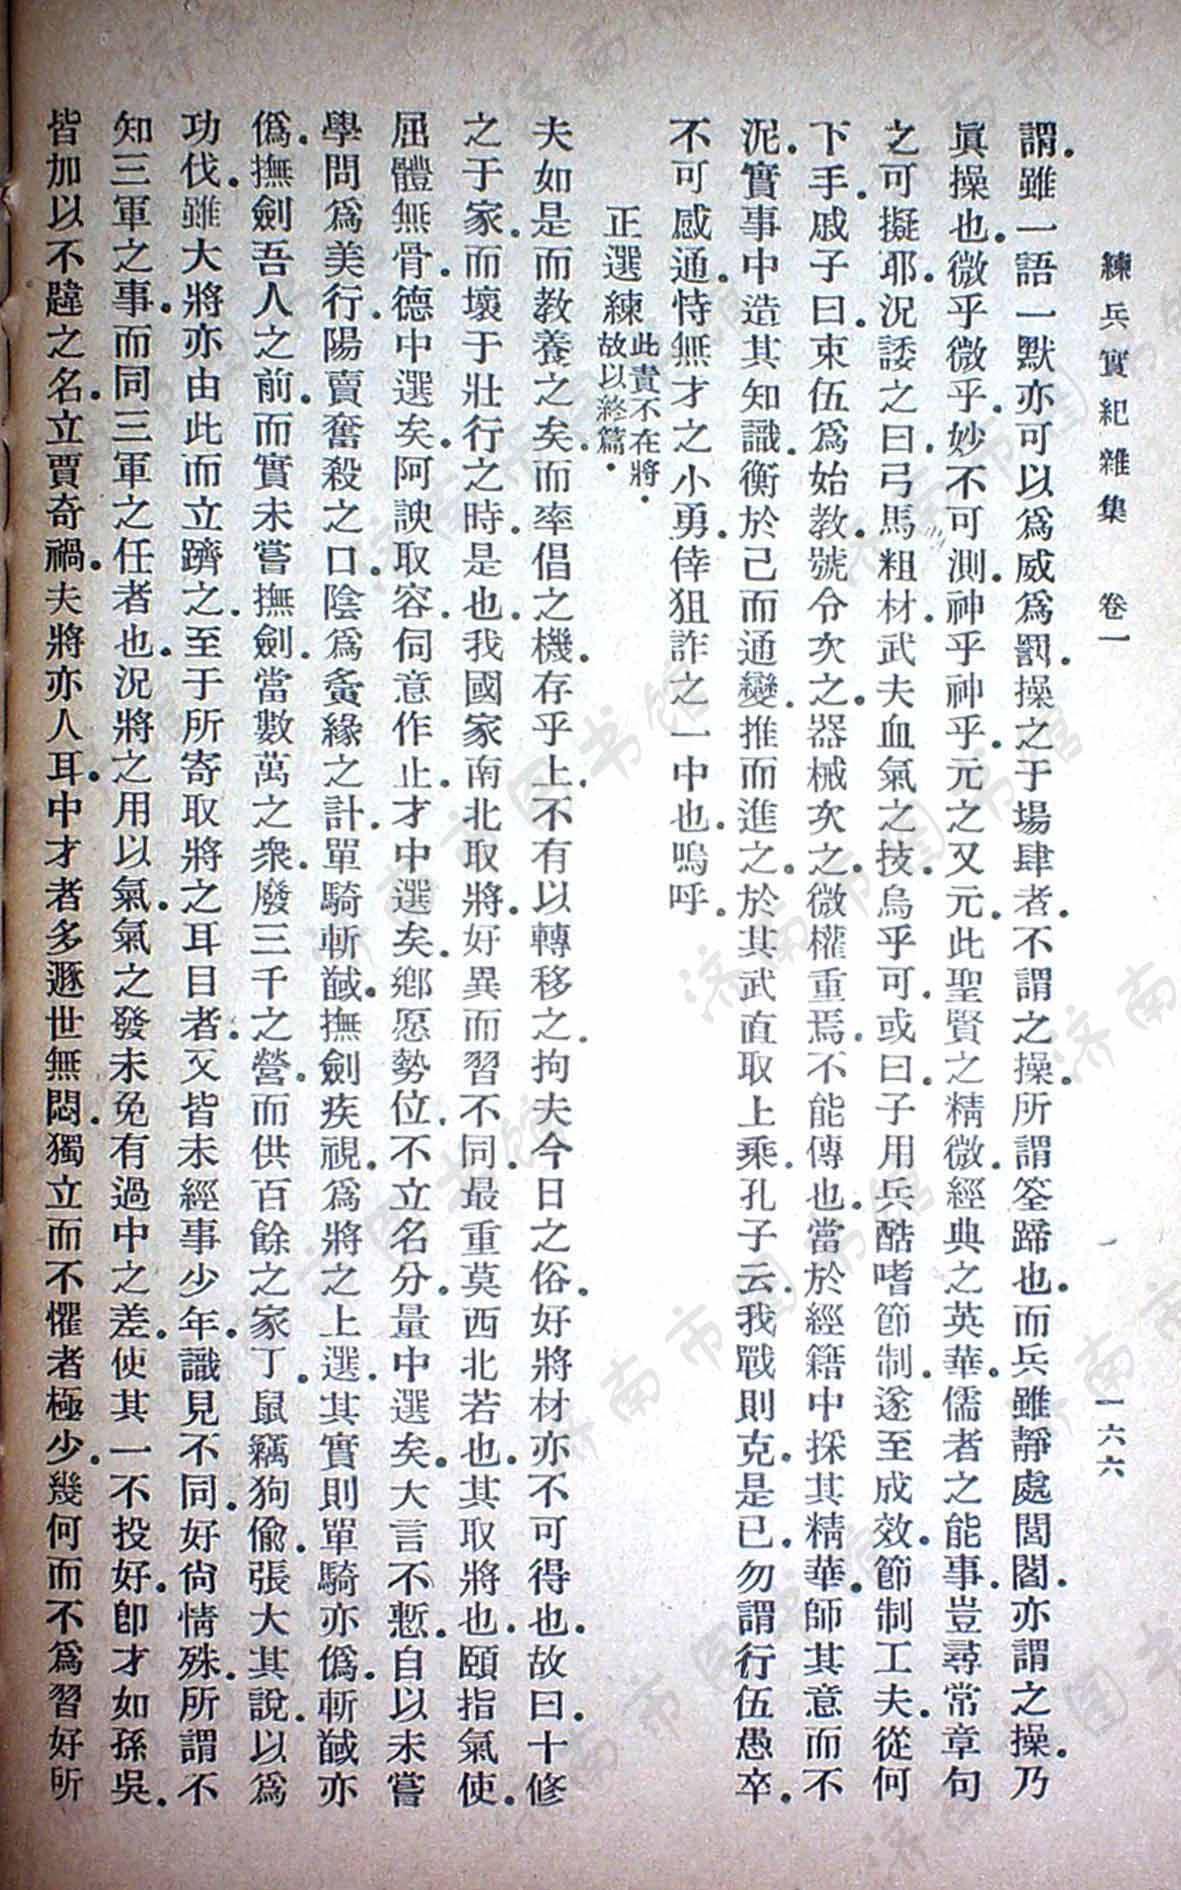 練兵實紀雜集　卷一　一六六
謂。雖一語一默亦可以爲威爲罰。操之于場肆者。不謂之操。所謂筌蹄也。而兵雖靜處閭閻。亦謂之操。乃
眞操也。微乎微乎。妙不可測。神乎神乎。元之又元。此聖賢之精微。經典之英華。儒者之能事。豈尋常章句
之可擬耶。況諉之曰。弓馬粗材。武夫血氣之技。烏乎可。或曰。子用兵酷嗜節制。遂至成效。節制工夫。從何
下手。戚子曰。束伍爲始。教號令次之。器械次之。微權重焉。不能傳也。當於經籍中採其精華。師其意而不
泥。實事中造其知識。衡於己而通變。推而進之。於其武直取上乘。孔子云。我戰則克。是已。勿謂行伍愚卒。
不可感通。恃無才之小勇。倖狙詐之一中也。嗚呼。
正選練此責不在將。故以終篇。
夫如是而教養之矣。而率倡之機。存乎上。不有以轉移之。拘夫今日之俗。好將材亦不可得也。故曰。十修
之于家。而壞于壯行之時。是也。我國家南北取將。好異而習不同。最重莫西北若也。其取將也。頤指氣使。
屈體無骨。德中選矣。阿諛取容。伺意作止。才中選矣。鄕愿勢位。不立名分。量中選矣。大言不慙。自以未嘗
學問爲美行。陽賣奮殺之口。陰爲夤緣之計。單騎斬馘。撫劍疾視。爲將之上選。其實則單騎亦僞。斬馘亦
僞。撫劍吾人之前。而實未嘗撫劍。當數萬之衆。廢三千之營。而供百餘之家丁。鼠竊狗偸。張大其說。以爲
功伐。雖大將亦由此而立躋之。至于所寄取將之耳目者。又皆未經事少年。識見不同。好尙情殊。所謂不
知三軍之事。而同三軍之任者也。況將之用以氣。氣之發未免有過中之差。使其一不投好。卽才如孫吳。
皆加以不韙之名。立賈奇禍。夫將亦人耳。中才者多。遯世無悶。獨立而不懼者極少。幾何而不爲習好所